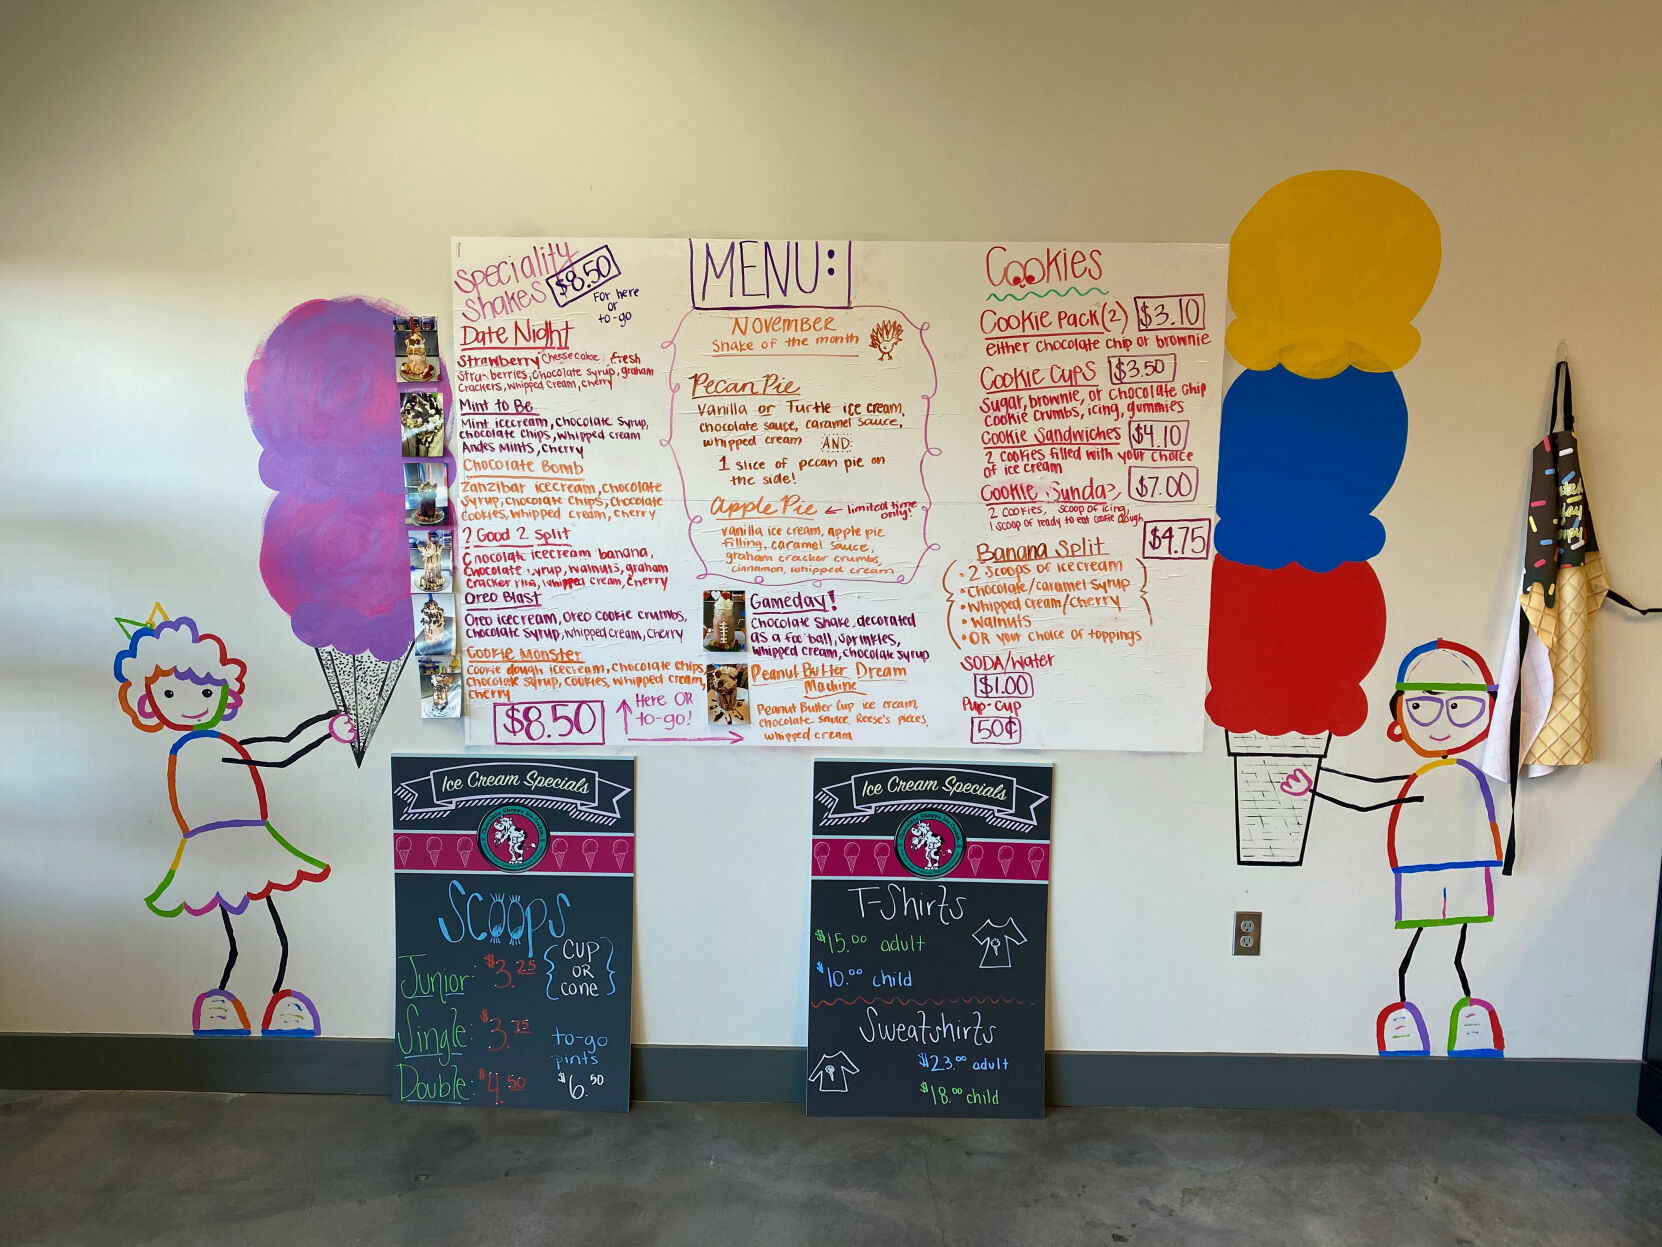 Speciality
Shakes $8.50
For here
or
to-go
Date Night
Strawberry Cheesecake, fresh
strawberries, Chocolate syrup, graham
crackers, whipped cream, cherry
Mint to Be
Mint icecream, chocolate syrup,
chocolate chips, whipped cream
Andes Mints, cherry
Chocolate Bomb
Zanzibar icecream, chocolate
syrup, chocolate chips, chocolate
cookies, whipped cream, cherry
2 Good 2 Split
Chocolate icecream banana,
chocolate syrup, walnuts, graham
cracker rim, whipped cream, cherry
Oreo Blast
Oreo icecream, Oreo cookie crumbs,
chocolate syrup, whipped cream, cherry
Cookie Monster
Cookie dough icecream, chocolate chips,
chocolate syrup, cookies, whipped cream,
cherry
$8.50
Here OR
to-go!
MENU:
November
Shake of the month
Pecan Pie
Vanilla or Turtle ice cream,
chocolate sauce, caramel sauce,
whipped cream AND
1 slice of pecan pie on
the side!
Apple Pie ← limited time
only!
vanilla ice cream, apple pie
filling, caramel sauce,
graham cracker crumbs,
cinnamon, whipped cream
Gameday!
Chocolate Shake, decorated
as a football, sprinkles,
whipped cream, chocolate syrup
Peanut Butter Dream
Machine
Peanut Butter Cup ice cream,
chocolate sauce, Reese's pieces,
whipped cream
Cookies
Cookie Pack (2) $3.10
either chocolate chip or brownie
Cookie Cups $3.50
Sugar, brownie, or chocolate chip
cookie crumbs, icing, gummies
Cookie Sandwiches $4.10
2 cookies filled with your choice
of ice cream
Cookie Sunda $7.00
2 cookies, scoop of icing,
1 scoop of ready to eat cookie dough
Banana Split $4.75
• 2 scoops of icecream
• Chocolate/caramel syrup
• Whipped cream/cherry
• Walnuts
• OR your choice of toppings
SODA/Water
$1.00
Pup-Cup
50¢
Ice Cream Specials
Scoops
Junior: $3.25
CUP
OR
cone
Single: $3.75
to-go
pints
Double: $4.50
$6.50
Ice Cream Specials
T-Shirts
$15.00 adult
$10.00 child
Sweatshirts
$23.00 adult
$18.00 child